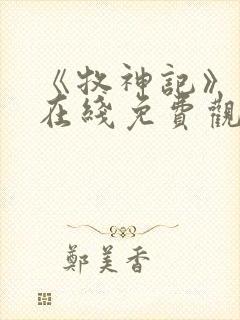 《牧神記》
在綫免費觀
鄭美香